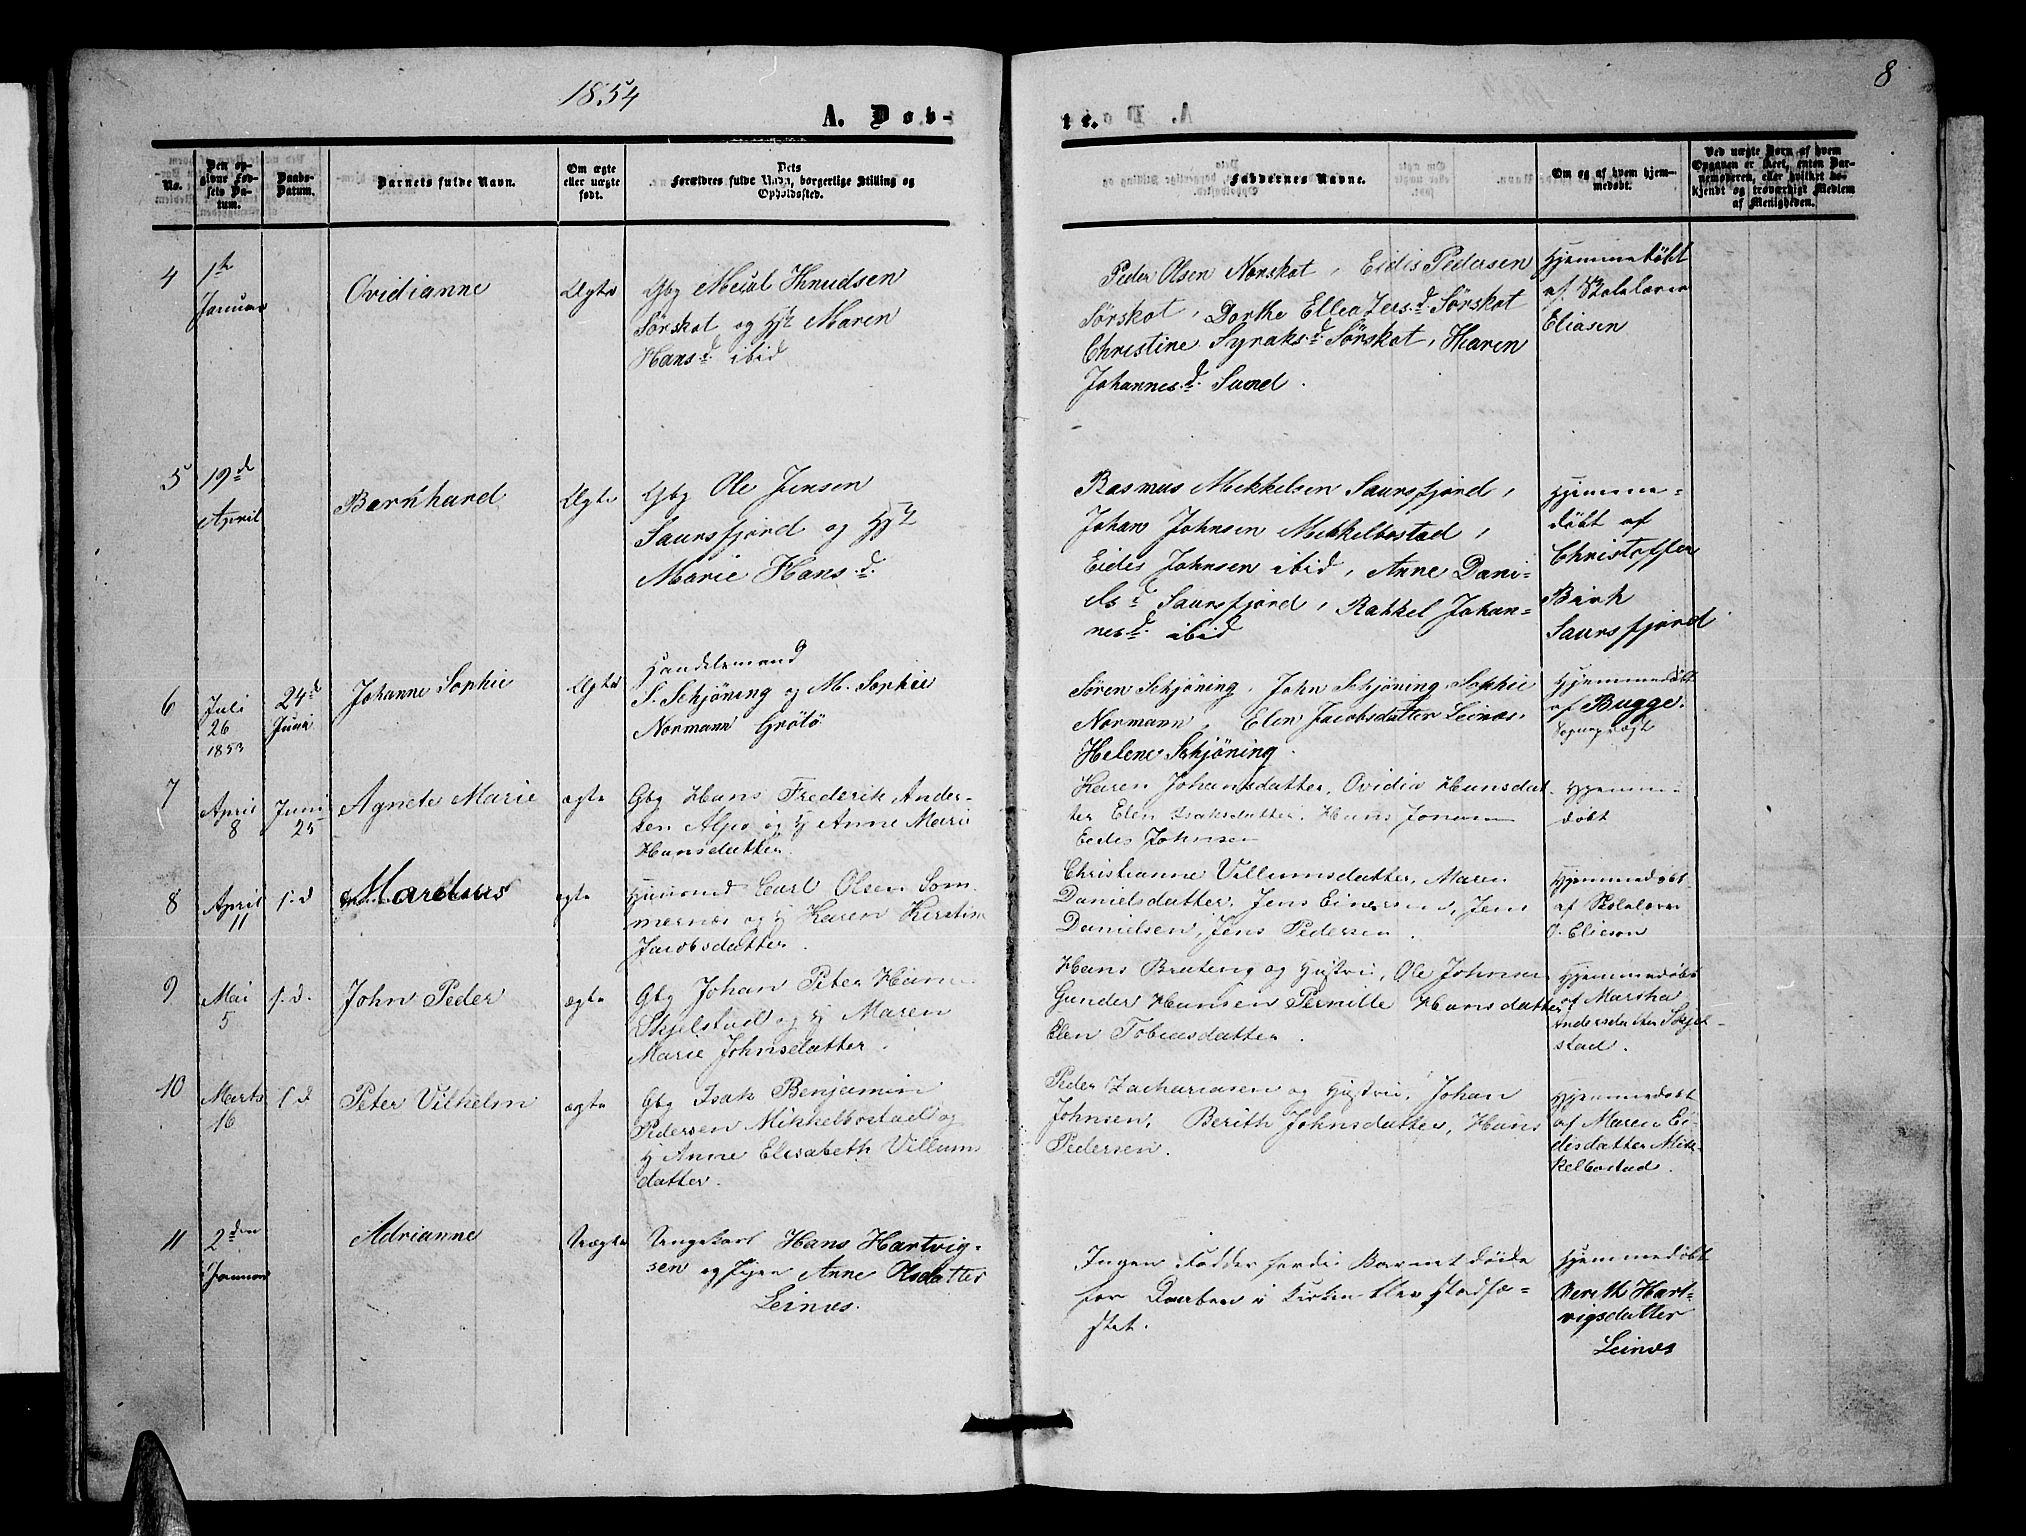 1854
8
A. Dov-
te.
No.
Den op-
givne Fød-
sels Da-
tum.
Daabs-
Datum.
Barnets fulde Navn.
Om ægte
eller uægte
født.
Dets
Forældres fulde Navn, borgerlige Stilling og
Opholdssted.
Faddernes Navne.
Om og af hvem hjem-
medøbt.
Ved uægte Børn af hvem
Opgaven er skeet, enten Bar-
nemoderen, eller hvilket be-
kjendt og troværdigt Medlem
af Menigheden.
4
1ste
Januar
Ovidianne
Ægte
Gbg Knudsen
Sørskot og Hst Maren
Hansd. ibid
Peder Olsen Norskot, Eidis Pedersen
Sørskot, Dorthe Ellea Jersd. Sørskot
Christine Syraksd. Sørskot, Karen
Johannesd. Sund.
Hjemmedøbt
af Skolelærer
Eliasen
5
19de
April
Bernhard
Ægte
Gbg Ole Jensen
Saursfjord og Hst
Marie Hansd.
Rasmus Mekkelsen Saursfjord,
Johan Johnsen Mekkelbostad,
Eides Johnsen ibid, Anne Dani-
elsd Saursfjord, Rakkel Johan-
nesd. ibid
Hjemme-
døbt af
Christoffer
Birk
Saursfjord
6
Juli
26
1853
24d
Juni
Johanne Sophie
Ægte
Handelsmand
S. Schjöning og M. Sophie
Normann Grötö
Sören Schjöning, John Schjöning, Sophie
Normann, Elen Jacobsdatter Leinæs,
Helene Schjöning.
Hjemmedøbt
af Bugge.
7
April
8
Juni
25
Agnete Marie
ægte
Gbg Hans Frederik Ander-
sen Alpö og H Anne Marie
Hansdatter.
Karen Johansdatter, Ovidia Hansdat-
ter Elen Isaksdatter. Hans Jonsen
Eedis Johnsen
Hjemme-
døbt
8
April
11
s. d
Mardus
ægte
Huusmd Carl Olsen Som-
mernæs og H Karen Kirstine
Jacobsdatter.
Christianne Villumsdatter, Maren
Danielsdatter, Jens Einersen, Jens
Danielsen, Jens Pedersen.
Hjemmedøbt
af Skolelærer
O. Elieson
9
Mai
5
s. d.
John Peder
ægte
Gbg Johan Peter Hans
Skjelstad og H Maren
Marie Johnsdatter.
Hans Bruteng og Hustru, Ole Johnsen
Gunder Hansen Pernille Hansdatter
Elen Tobiasdatter.
Hjemmedøbt
af Martha
Andersdatter Skjel-
stad.
10
Marts
16
s. d
Peter Vilhelm
ægte
Gbg Isak Benjamin
Pedersen Mikkelbostad og
H Anne Elisabeth Villums
datter.
Peder Zachariasen og Hustru, Johan
Johnsen, Berith Johnsdatter, Hans
Pedersen.
Hjemmedøbt
af Maren Ei-
disdatter Mik-
kelbostad.
11
2den
Januar
Adrianne
Uægte
Ungekarl Hans Hartvig-
sen og Pigen Anne Olsdatter
Leinæs.
Ingen Fadder fordi Barnet døde
før Daaben i Kirken blev stadfæ-
stet.
Hjemmedøbt
Berith Hart-
vigsdatter
Leinæs